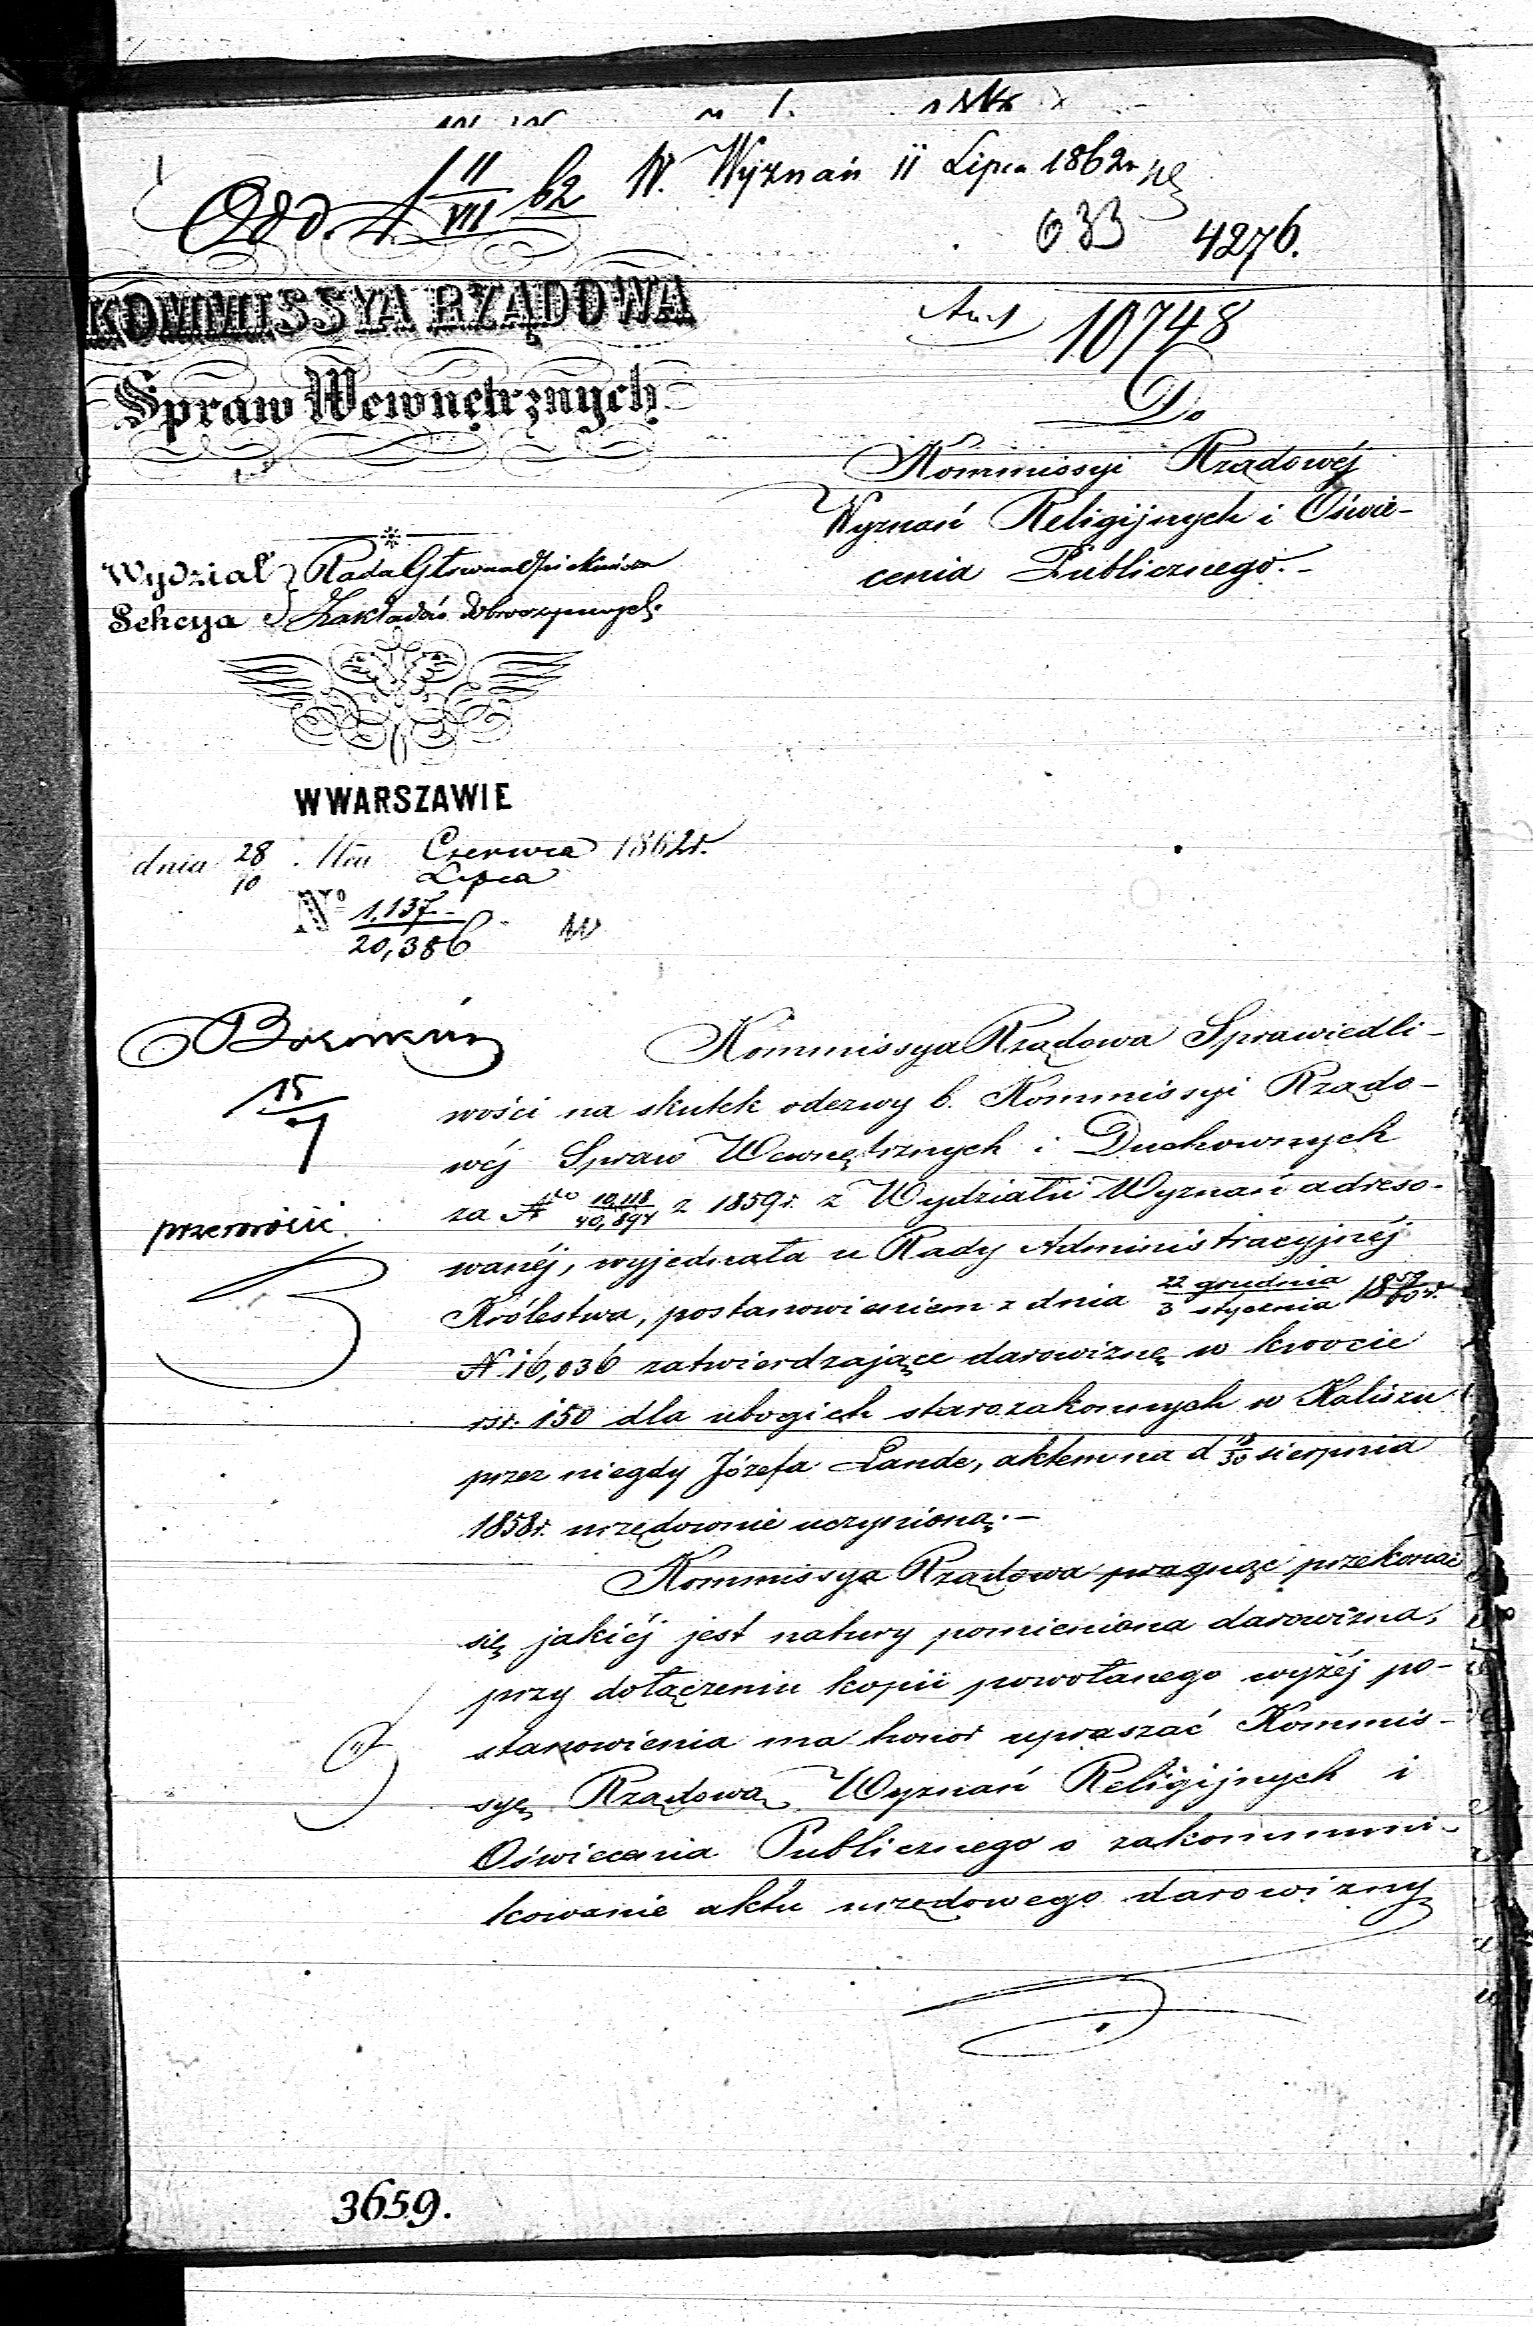 Odd. 4 11/VII 62 W. Wyznań 11 Lipca 1862 r
633 4276.
10748
KOMMISSYA RZĄDOWA
Spraw Wewnętrznych
Do
Kommissyi Rządowéj
Wyznań Religijnych i Oświe-
cenia Publicznego.-
Wydział Rada Główna Opiekuńcza
Sekcya Zakładów dobroczynnych.
W WARSZAWIE
dnia 28/10 Czerwca/Lipca 1862 r.
No 1,137/20,386
15/7
przewrócić.
Kommissya Rządowa Sprawiedli-
wości na skutek odezwy b. Kommissyi Rządo-
wéj Spraw Wewnętrznych i Duchownych
za No 10,118/40,894 z 1859 r. z Wydziału Wyznań adreso-
wanéj, wyjednała u Rady Administracyjnéj
Królestwa, postanowieniem z dnia 22 grudnia/3 stycznia 1859/60 r.
N 16,036 zatwierdzające darowiznę w kwocie
rsr. 150 dla ubogich starozakonnych w Kaliszu
przez niegdy Józefa Lande, aktem na d 18/30 sierpnia
1858 r. urzędownie uczynioną.-
Kommissya Rządowa pragnąc przekonać
się jakiéj jest natury pomieniona darowizna,
przy dołączeniu kopii powołanego wyżéj po-
stanowienia ma honor upraszać Kommis-
syę Rządową Wyznań Religijnych i
Oświecenia Publicznego o zakommuni-
kowanie aktu urzędowego darowizny
3659.